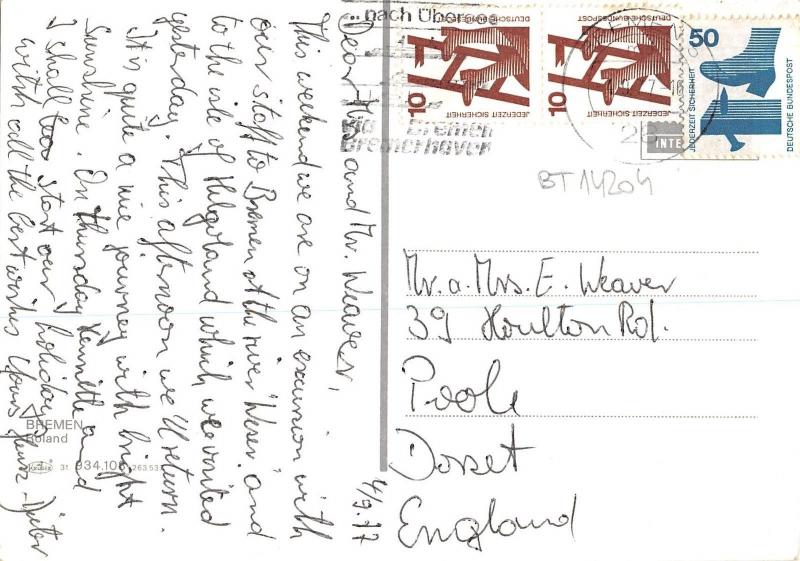 4/9.77
Dear Mrs and Mr. Weaver,
This weekend we are on an excursion with
our staff to Bremen at the river "Weser" and
to the isle of Helgoland which we visited
yesterday. This afternoon we'll return.
It is quite a nice journey with bright
sunshine. On thursday Kennette and
I shall too start our holiday
with all the best wishes Yours Heinz-Dieter
BREMEN
Roland
31 934.106 263 53
...nach Über
via Bremen
Bremerhaven
10
DEUTSCHE BUNDESPOST
JEDERZEIT SICHERHEIT
10
DEUTSCHE BUNDESPOST
JEDERZEIT SICHERHEIT
50
JEDERZEIT SICHERHEIT
DEUTSCHE BUNDESPOST
28
INTE
BT 14204
Mr. a. Mrs. E. Weaver
39 Houlton Rd.
Poole
Dorset
England